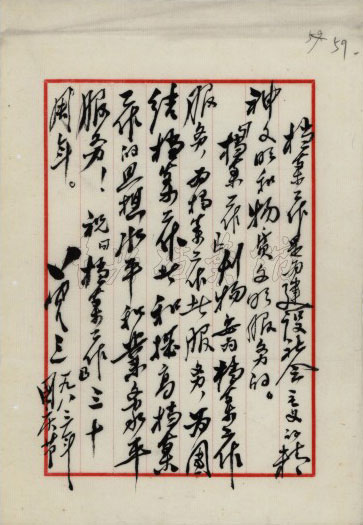 59.
档案工作是为建设社会主义的精
神文明和物质文明服务的。
《档案工作》刊物要为档案工作
服务，为档案工作者服务，为团
结档案工作者和提高档案
工作的思想水平和业务水平
服务！祝《档案工作》三十
周年。
一九八三年
国庆节